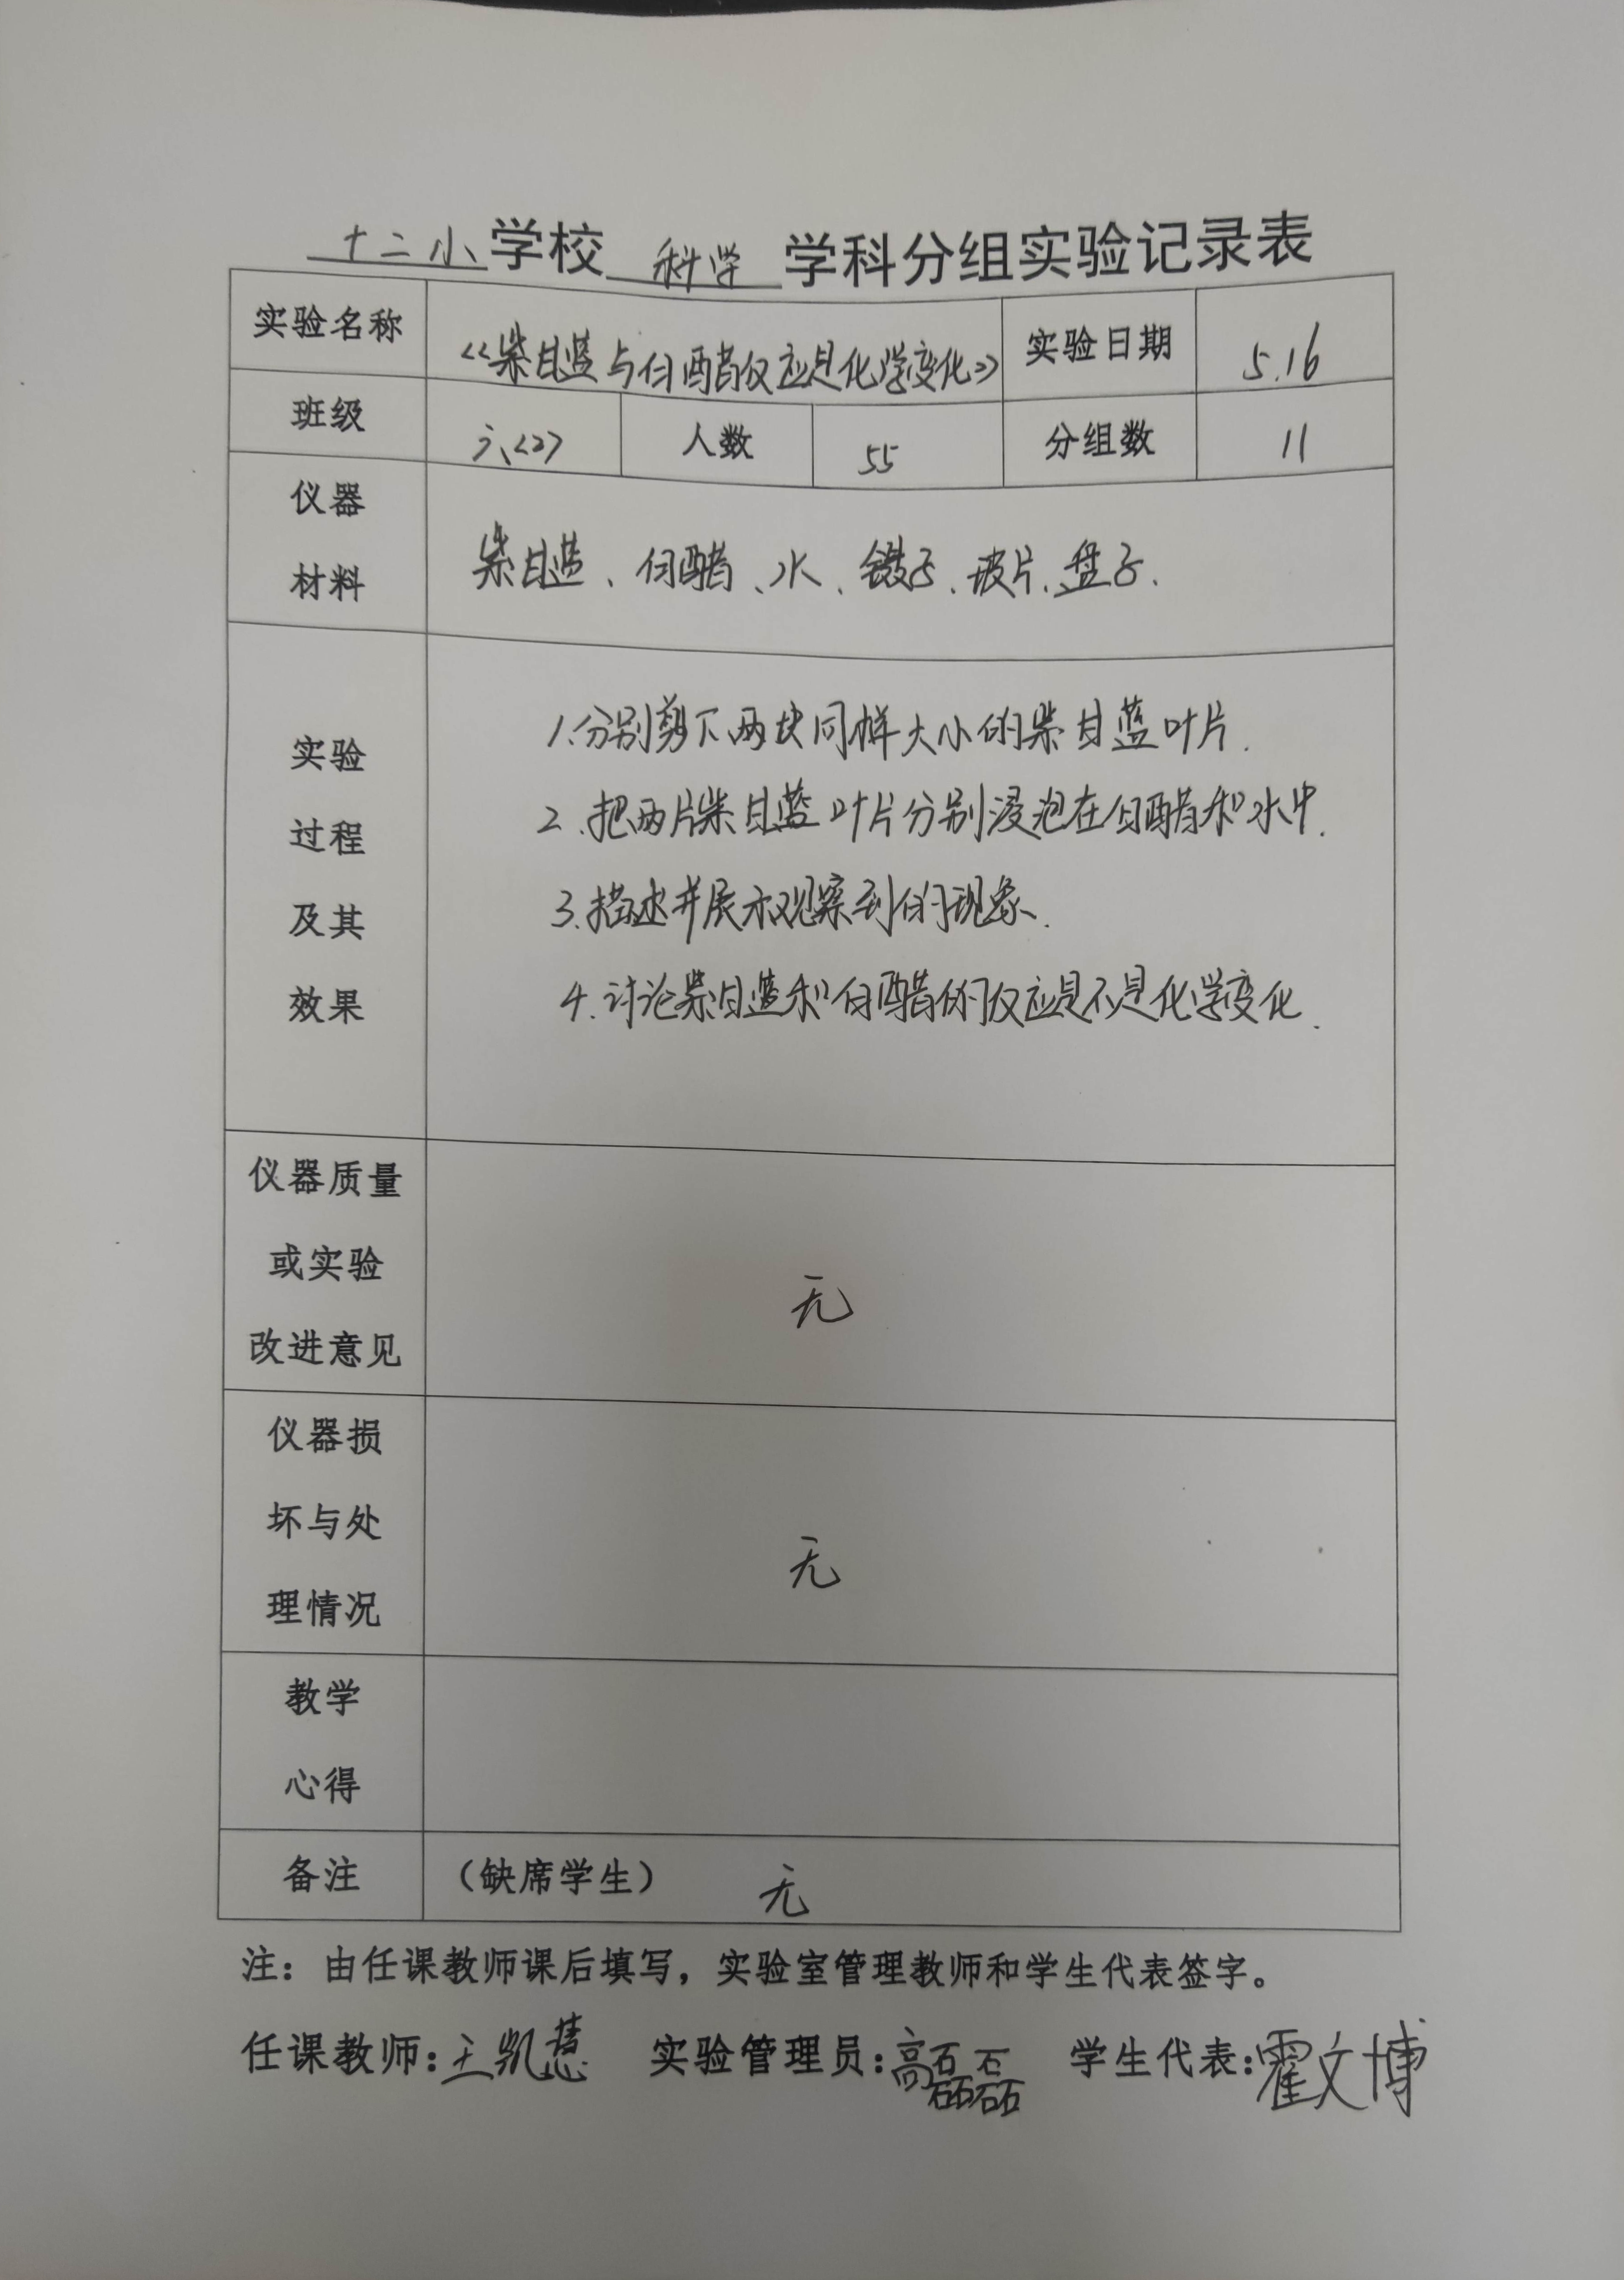 十二小学校 科学 学科分组实验记录表
实验名称 《紫甘蓝与白醋反应是化学变化》 实验日期 5.16
班级 六<2> 人数 55 分组数 11
仪器
材料
紫甘蓝、白醋、水、镊子、玻片、盘子.
实验
过程
及其
效果
1.分别剪下两块同样大小的紫甘蓝叶片.
2.把两片紫甘蓝叶片分别浸泡在白醋和水中.
3.描述并展示观察到的现象.
4.讨论紫甘蓝和白醋的反应是不是化学变化.
仪器质量
或实验
改进意见
无
仪器损
坏与处
理情况
无
教学
心得
备注 (缺席学生) 无
注：由任课教师课后填写，实验室管理教师和学生代表签字。
任课教师:王凯慧 实验管理员:高磊磊 学生代表:霍文博